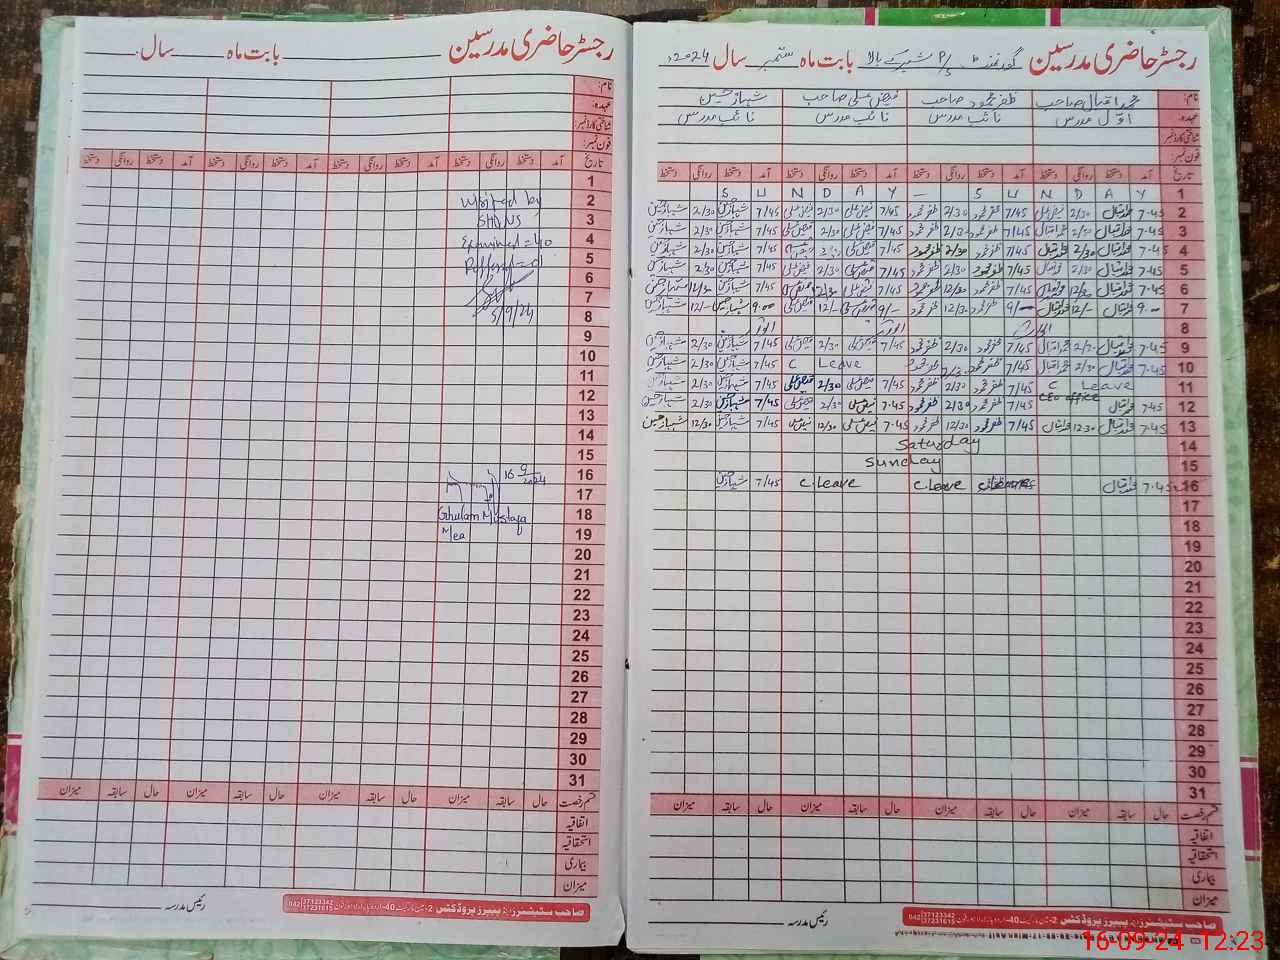 رجسٹر حاضری مدرسین گورنمنٹ P/S بالا بابت ماہ ستمبر سال 2024ء
نام: محمد اقبال صاحب ظفر محمود صاحب فیض علی صاحب شہباز حسین
عہدہ: اوّل مدرس نائب مدرس نائب مدرس نائب مدرس
شناختی کارڈ نمبر:
فون نمبر:
تاریخ آمد دستخط روانگی دستخط آمد دستخط روانگی دستخط آمد دستخط روانگی دستخط آمد دستخط روانگی دستخط
1 S U N D A Y — S U N D A Y
2 7.45 محمد اقبال 2/30 7/45 ظفر محمود 2/30 ظفر محمود 7/45 فیض علی 2/30 فیض علی 7/45 شہباز حسین 2/30 شہباز حسین
3 7.45 محمد اقبال 2/30 محمد اقبال 7/45 ظفر محمود 2/30 ظفر محمود 7/45 فیض علی 2/30 فیض علی 7/45 شہباز حسین 2/30 شہباز حسین
4 7.45 محمد اقبال 2/30 محمد اقبال 7/45 ظفر محمود 2/30 ظفر محمود 7/45 فیض علی 7/45 شہباز حسین 2/30 شہباز حسین
5 7.45 محمد اقبال 2/30 محمد اقبال 7/45 ظفر محمود 2/30 ظفر محمود 7/45 فیض علی 2/30 فیض علی 7/45 شہباز حسین 2/30 شہباز حسین
6 7.45 محمد اقبال 12/30 محمد اقبال 7/45 ظفر محمود 12/30 ظفر محمود 7/45 فیض علی 12/30 فیض علی 7/45 شہباز حسین 12/30 شہباز حسین
7 9.00 محمد اقبال 12/- محمد اقبال 9/- ظفر محمود 12/30 ظفر محمود 9/- فیض علی 12/- فیض علی 9.00 شہباز حسین 12/- شہباز حسین
8 اتوار اتوار اتوار
9 7.45 محمد اقبال 2/30 محمد اقبال 7/45 ظفر محمود 2/30 ظفر محمود 7/45 فیض علی 2/30 فیض علی 7/45 شہباز حسین 2/30 شہباز حسین
10 7.45 محمد اقبال 2/30 محمد اقبال 7/45 ظفر محمود 2/30 ظفر محمود C Leave 7/45 شہباز حسین 2/30 شہباز حسین
11 C Leave 7/45 ظفر محمود 2/30 ظفر محمود 7/45 فیض علی 2/30 فیض علی 7/45 شہباز حسین 2/30 شہباز حسین
12 7.45 محمد اقبال CEO office 7/45 ظفر محمود 2/30 ظفر محمود 7.45 فیض علی 2/30 فیض علی 7/45 شہباز حسین 2/30 شہباز حسین
13 7.45 محمد اقبال 12.30 محمد اقبال 7/45 ظفر محمود 12/30 ظفر محمود 7.45 فیض علی 12/30 فیض علی 7/45 شہباز حسین 12/30 شہباز حسین
14 Saturday
15 Sunday
16 7.45 محمد اقبال C.leave C.leave 7/45 شہباز حسین
17
18
19
20
21
22
23
24
25
26
27
28
29
30
31
قسم رخصت حال سابقہ میزان حال سابقہ میزان حال سابقہ میزان حال سابقہ میزان
اتفاقیہ
استحقاقیہ
بیماری
میزان
رئیس مدرسہ
صاحب سٹیشنرز اینڈ پیپرز پروڈکٹس
042 37123342
37231615
رجسٹر حاضری مدرسین بابت ماہ سال
نام:
عہدہ:
شناختی کارڈ نمبر:
فون نمبر:
تاریخ آمد دستخط روانگی دستخط آمد دستخط روانگی دستخط آمد دستخط روانگی دستخط آمد دستخط روانگی دستخط
1
2 Visited by
3 SH&NS
4 Examined = 40
5 Reffered = 01
6
7
8 5/9/24
9
10
11
12
13
14
15
16 16 9/2024
17
18 Ghulam Mustafa
19 Mea
20
21
22
23
24
25
26
27
28
29
30
31
قسم رخصت حال سابقہ میزان حال سابقہ میزان حال سابقہ میزان حال سابقہ میزان
اتفاقیہ
استحقاقیہ
بیماری
میزان
رئیس مدرسہ
صاحب سٹیشنرز اینڈ پیپرز پروڈکٹس
042 37123342
37231615
16-09-24 12:23